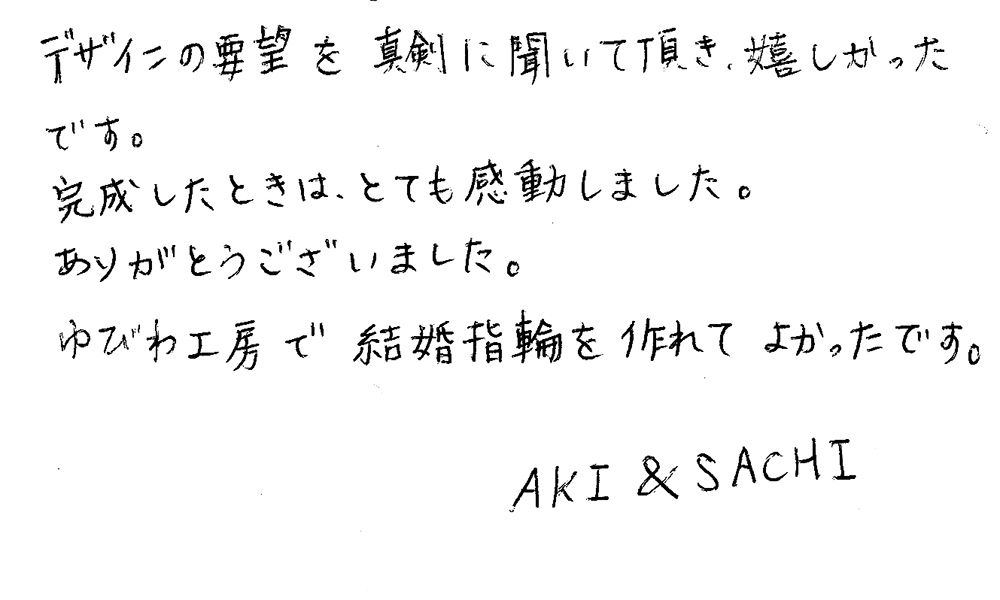 デザインの要望を真剣に聞いて頂き、嬉しかった
です。
完成したときは、とても感動しました。
ありがとうございました。
ゆびわ工房で結婚指輪を作れてよかったです。
AKI & SACHI